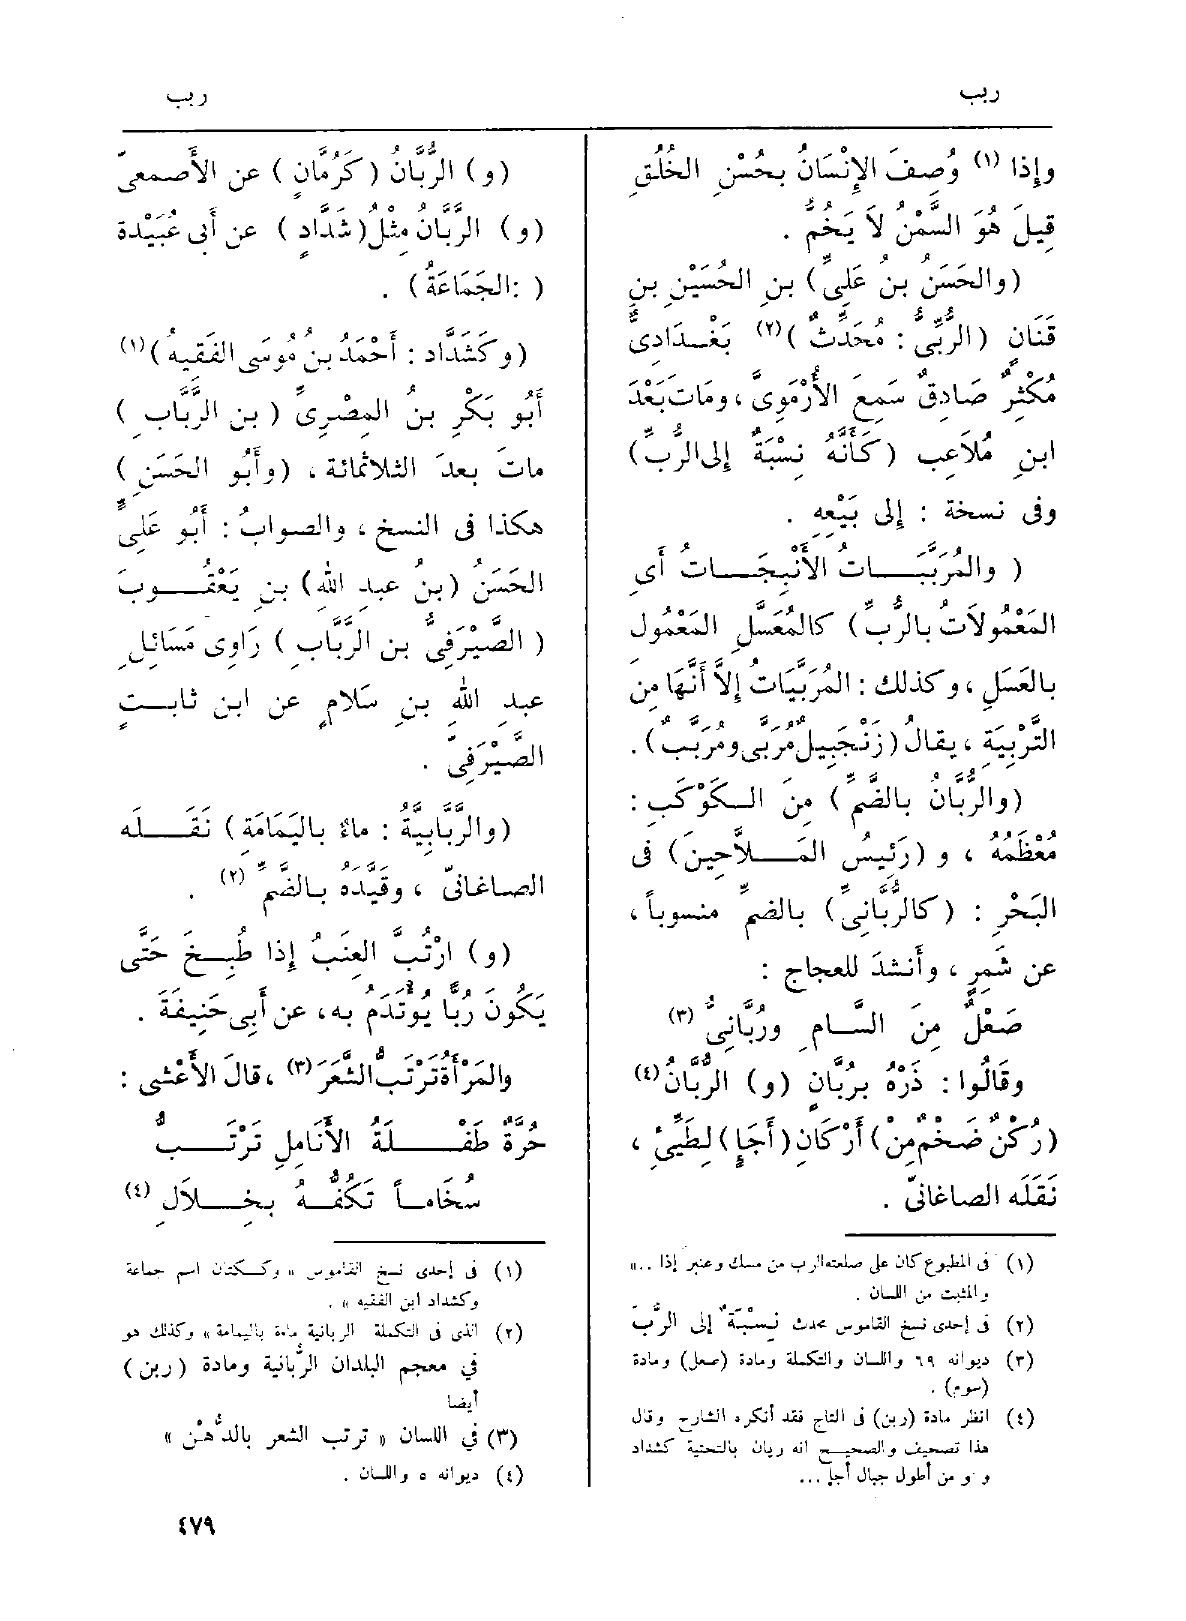 ربب
ربب
وإذا (١) وُصِفَ الإِنْسَانُ بحُسْنِ الخُلُقِ
قِيلَ هُوَ السَّمْنُ لَا يَخُمُّ .
(والحَسَنُ بن عَلِيٍّ) بنِ الحُسَيْنِ بنِ
قَنَانٍ (الرُّبِّيُّ : مُحَدِّثٌ) (٢) بَغْدَادِيٌّ
مُكْثِرٌ صَادِقٌ سَمِعَ الأُرْمَوِيَّ ، ومَاتَ بَعْدَ
ابنِ مُلَاعِب (كَأَنَّهُ نِسْبَةٌ إلى الرُّبِّ)
وفى نسخة : إلى بَيْعِهِ .
( والمُرَبَّبَاتُ الأَنْبِجَاتُ أَي
المَعْمُولَاتُ بالرُّبِّ) كالمُعَسَّلِ المَعْمُول
بالعَسَلِ ، وكذلك : المُرَبَّيَاتُ إلاَّ أَنَّهَا مِنَ
التَّرْبِيَةِ ، يقالُ (زَنْجَبِيلٌ مُرَبًّى ومُرَبَّبٌ) .
(والرُّبَّانُ بالضَّمِّ) مِنَ الكَوْكَبِ :
مُعْظَمُهُ ، و (رَئِيسُ المَلاَّحِينَ) فى
البَحْرِ : (كالرُّبَّانِىِّ) بالضمِّ منسوباً ،
عن شَمِرٍ ، وأَنشدَ للعجاج :
صَعْلٌ مِنَ السَّامِ ورُبَّانِىُّ (٣)
وقَالُوا : ذَرْهُ بِرُبَّانٍ (و) الرُّبَّانُ (٤)
(رُكْنٌ ضَخْمٌ مِنْ) أَرْكَانِ (أَجَإٍ) لِطَيِّئٍ ،
نَقَلَه الصاغانىّ .
(١) فى المطبوع كان على صلعته الرب من مسك وعنبر إذا ..»
والمثبت من اللسان .
(٢) فى إحدى نسخ القاموس محدث نِسْبَةٌ إلى الرُّبّ
(٣) ديوانه ٦٩ واللسان والتكملة ومادة (صعل) ومادة
(سوم) .
(٤) انظر مادة (ربن) فى التاج فقد أنكره الشارح وقال
هذا تصحيف والصحيح انه ريان بالتحتية كشداد
و و من أطول جبال أجإ ...
(و) الرُّبَّانُ (كَرُمَّانٍ) عن الأَصمعىّ
(و) الرَّبَّانُ مِثْلُ (شَدَّادٍ) عن أَبى عُبَيْدة
( :الجَمَاعَةُ) .
(وكَشَدَّاد : أَحْمَدُ بنُ مُوسَى الفَقِيهُ) (١)
أَبُو بَكْرِ بنُ المِصْرِىِّ (بن الرَّبَّابِ )
ماتَ بعدَ الثلاثمائة ، (وأَبُو الحَسَنِ)
هكذا فى النسخ ، والصوابُ : أَبُو عَلِىٍّ
الحَسَنُ (بنُ عبدِ اللهِ) بنِ يَعْقُوبَ
( الصَّيْرَفِىُّ بن الرَّبَّابِ ) رَاوِى مَسَائِلِ
عبدِ اللهِ بنِ سَلَامٍ عن ابن ثابتٍ
الصَّيْرَفِىّ .
(والرَّبَّابِيَّةُ : ماءٌ باليَمَامَةِ) نَقَلَه
الصاغانىّ ، وقَيَّدَه بالضَّمِّ (٢) .
(و) ارْتُبَّ العِنَبُ إذا طُبِخَ حَتَّى
يَكُونَ رُبًّا يُؤْتَدَمُ به، عن أَبى حَنِيفَةَ .
والمَرْأَةُ تَرْتَبُّ الشَّعَرَ (٣) ، قالَ الأَعْشى :
حُرَّةٌ طَفْلَةُ الأَنَامِلِ تَرْتَبُّ
سُخَاماً تَكُفُّهُ بخِلَالِ (٤)
(١) فى إحدى نسخ القاموس « وككتان اسم جماعة
وكشداد ابن الفقيه » .
(٢) الذى فى التكملة الربانية ماءة باليمامة » وكذلك هو
في معجم البلدان الرُّبانية ومادة (ربن)
أيضا
(٣) في اللسان « ترتب الشعر بالدُّهْن »
(٤) ديوانه ٥ واللسان .
٤٧٩